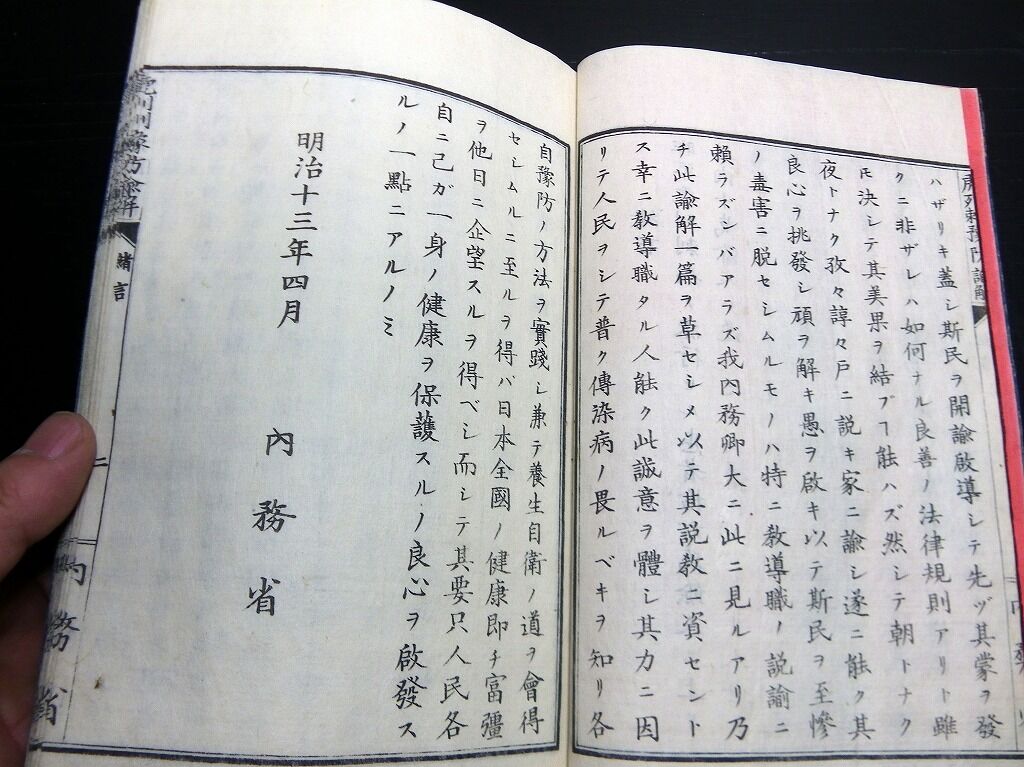 虎列剌豫防諭解
ハザリキ蓋シ斯民ヲ開諭啟導シテ先ヅ其蒙ヲ發
クニ非ザレハ如何ナル良善ノ法律規則アリト雖
モ決シテ其美果ヲ結ブヿ能ハズ然シテ朝トナク
夜トナク孜々諄々戸ニ説キ家ニ諭シ遂ニ能ク其
良心ヲ挑發シ頑ヲ解キ愚ヲ啟キ以テ斯民ヲ至慘
ノ毒害ニ脱セシムルモノハ特ニ教導職ノ説諭ニ
賴ラズンバアラズ我內務卿大ニ此ニ見ルアリ乃
チ此諭解一篇ヲ草セシメ以テ其説教ニ資セント
ス幸ニ教導職タル人能ク此誠意ヲ體シ其力ニ因
リテ人民ヲシテ普ク傳染病ノ畏ルベキヲ知リ各
自豫防ノ方法ヲ實踐シ兼テ養生自衛ノ道ヲ會得
セシムルニ至ルヲ得バ日本全國ノ健康即チ富彊
ヲ他日ニ企望スルヲ得ベシ而シテ其要只人民各
自ニ己ガ一身ノ健康ヲ保護スルノ良心ヲ啟發ス
ルノ一點ニアルノミ
明治十三年四月
內務省
豫防諭解
緒言
二
內務省